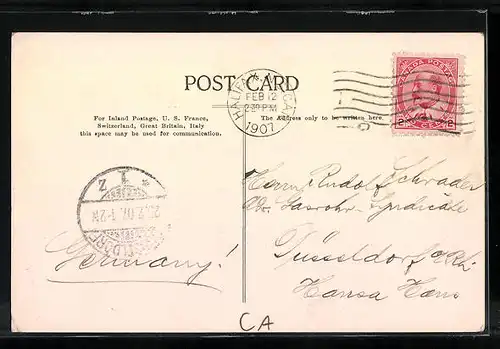 POST CARD
HALIFAX, CA
FEB 12
2 30 P M
1907
CANADA POSTAGE
2 CENTS 2
For Inland Postage, U. S. France,
Switzerland, Great Britain, Italy
this space may be used for communication.
The Address only to be written here.
Herrn Rudolf Schrader
Adr. Gasrohr-Syndicate
Düsseldorf a/Rh.
Hansa Haus
Germany!
1 Z
CA